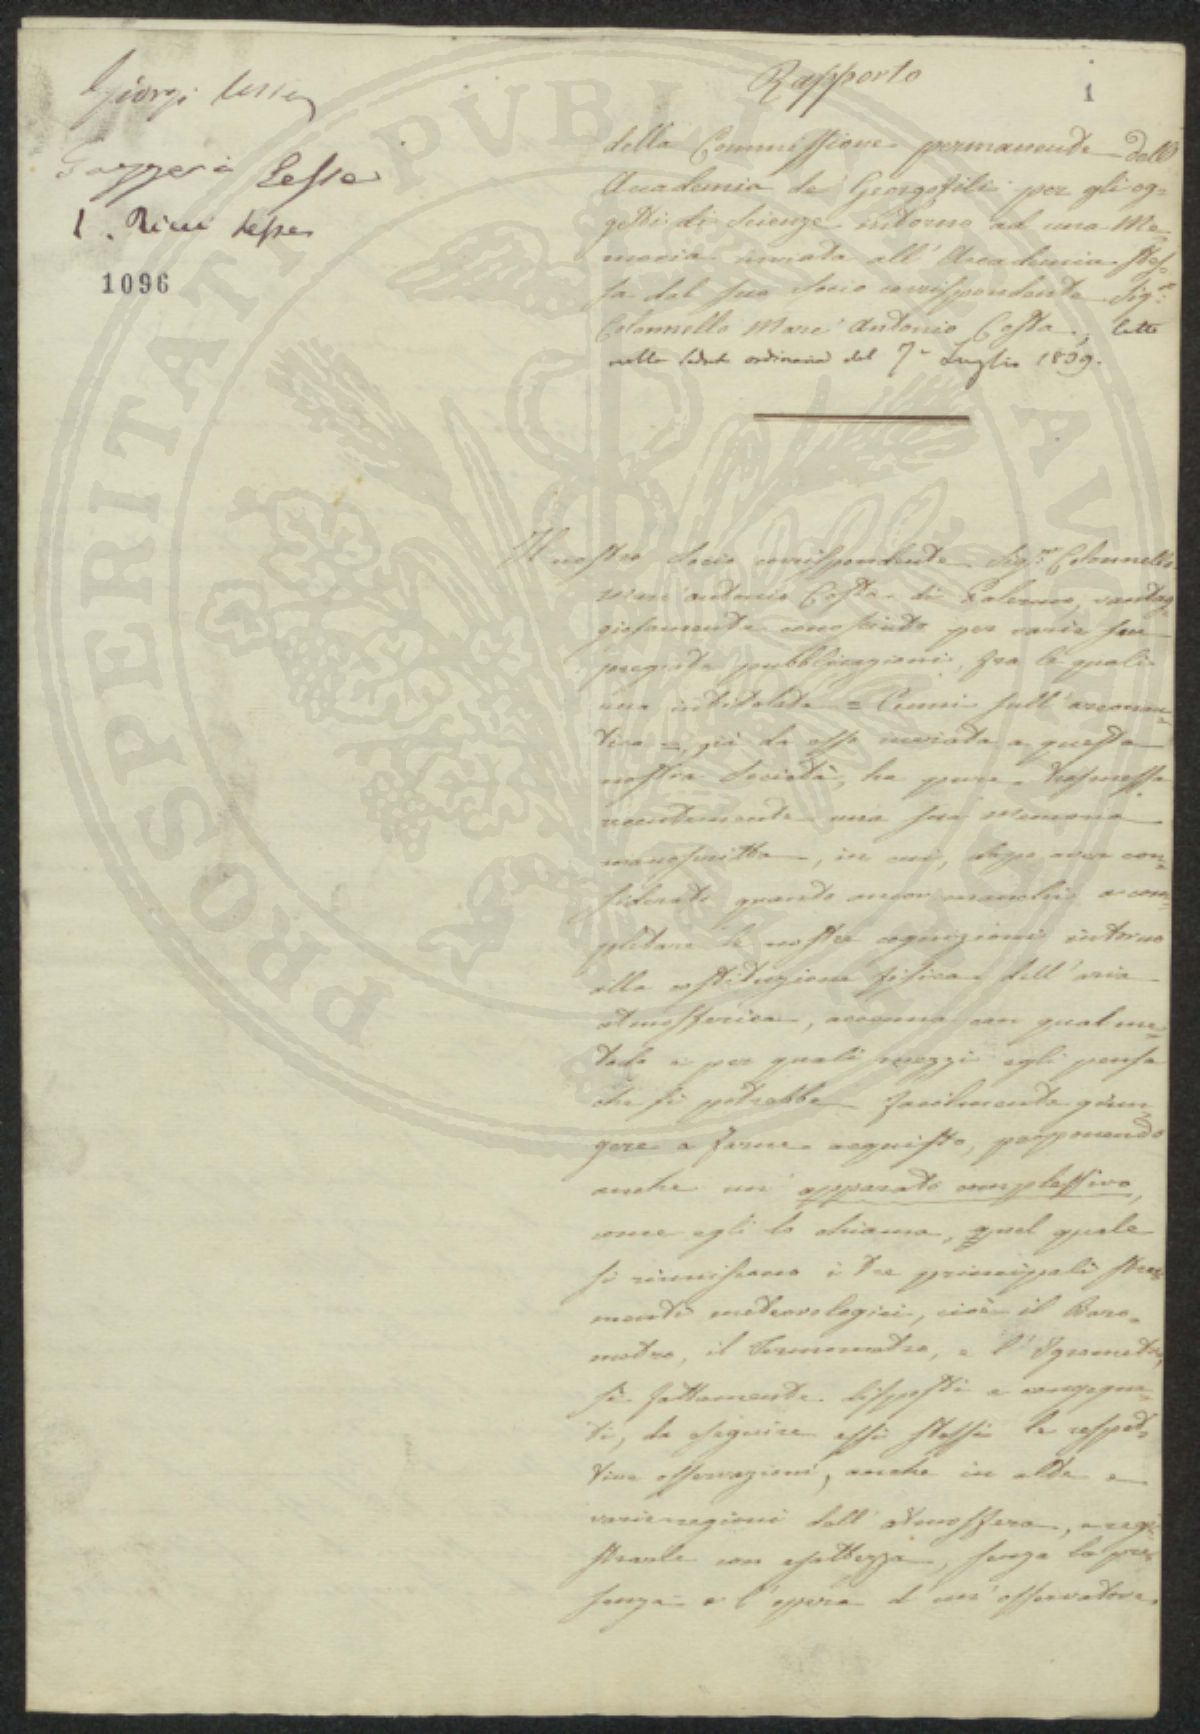 Giorgi lesse
Gazzeri Lesse
1. Rini lesse
1096
Rapporto
1
della Commissione permanente dell'
Accademia de' Georgofili per gli og=
getti di Scienze intorno ad una Me=
moria inviata all'Accademia stes=
sa dal suo Socio corrispondente Sig.re
Colonnello Marc'Antonio Costa, letto
nella Seduta ordinaria del 7 Luglio 1839.
Il nostro Socio corrispondente Sig.re Colonnello
Marc'antonio Costa di Palermo, vantag=
giosamente conosciuto per varie sue
pregiate pubblicazioni, fra le quali
una intitolata = Cenni sull'areonau=
tica =, già da esso inviata a questa
nostra Società, ha pure trasmessa
recentemente una sua Memoria
manoscritta, in cui, dopo aver con=
siderato quanto ancor manchi a com=
pletare le nostre cognizioni intorno
alla costituzione fisica dell'aria
atmosferica, accenna con qual me=
todo e per quali mezzi egli pensa
che si potrebbe facilmente giun=
gere a farne acquisto, proponendo
anche un apparato complessivo,
come egli lo chiama, nel quale
si riuniscono i tre principali stru=
menti meteorologici, cioè il Baro=
metro, il Termometro, e l'Igrometro,
sì fattamente disposti e congegna=
ti, da eseguire essi stessi le respet=
tive osservazioni, anche in alte e
varie regioni dell'atmosfera, e regi=
strarle con esattezza, senza la pre=
senza e l'opera d'un'osservatore.
PROSPERITATI PVBLICAE AVGENDAE